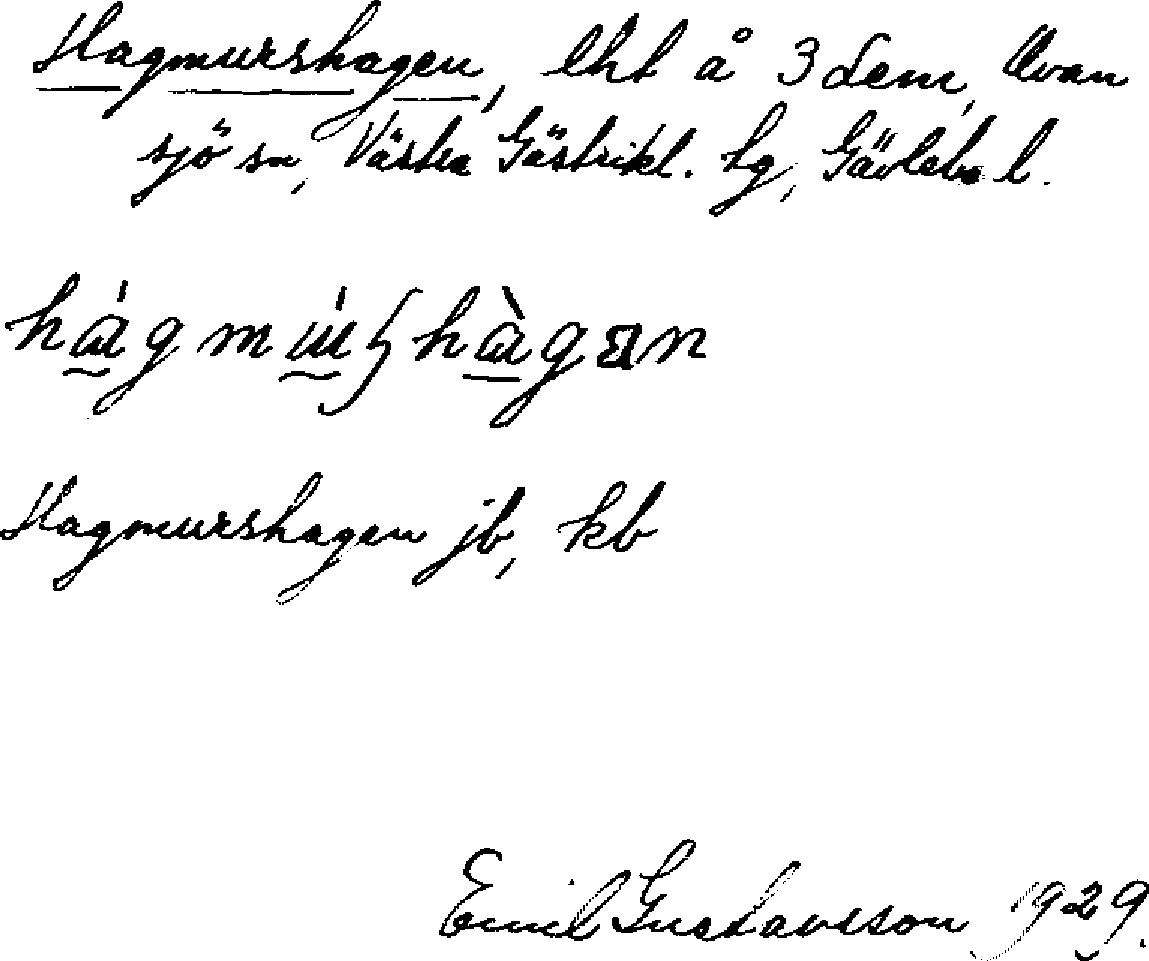 Hagmurshagen, lht å 3 dem, Ovan
sjö sn, Västra Gästrikl. tg, Gävleb. l.
Hagmurshagen jb, kb
Emil Gustavsson 1929.